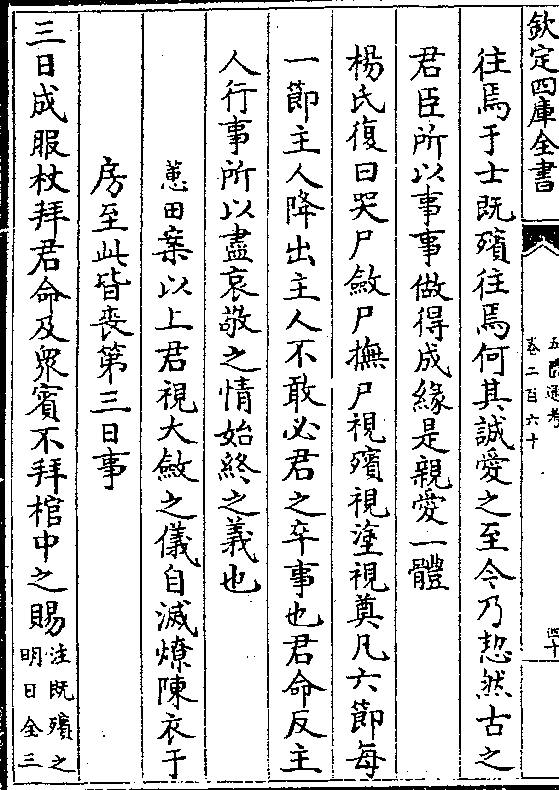 欽定四庫全書
五禮通考
卷二百六十
四十
往焉于士既殯往焉何其誠愛之至今乃恝然古之
君臣所以事事做得成緣是親愛一體
楊氏復曰哭尸斂尸撫尸視殯視塗視奠凡六節每
一節主人降出主人不敢必君之卒事也君命反主
人行事所以盡哀敬之情始終之義也
蕙田案以上君視大斂之儀自滅燎陳衣于
房至此皆喪第三日事
三日成服杖拜君命及眾賓不拜棺中之賜
注既殯之
明日全三